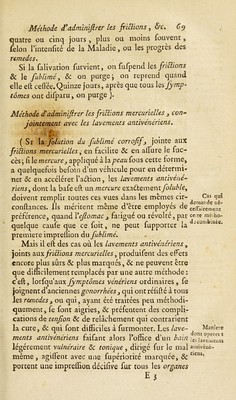 Méthode d'administrer les frictions, &c. 69
quatre ou cinq jours, plus ou moins souvent,
selon l'intensité de la Maladie, ou les progrès des
remedes.
Si la salivation survient, on suspend les frictions
& le sublimé, & on purge; on reprend quand
elle est cessée. Quinze jours, après que tous les symp-
tômes ont disparu, on purge ).
Méthode d'administrer les frictions mercurielles, con-
jointement avec les lavements antivénériens.
( Si la solution du sublimé corrosif, jointe aux
frictions mercurielles, en facilite & en assure le suc-
cès; si le mercure, appliqué à la peau sous cette forme,
a quelquefois besoin d'un véhicule pour en détermi-
ner & en accélérer l'action, les lavements antivéné-
riens, dont la base est un mercure exactement soluble,
doivent remplir toutes ces vues dans les mêmes cir-
constances. Ils méritent même d'être employés de
préférence, quand l'estomac, fatigué ou révolté, par
quelque cause que ce soit, ne peut supporter la
premiere impression du sublimé.
Cas qui
demande né-
cessairement
cette métho-
de combinée.
Mais il est des cas où les lavements antivénériens,
joints aux frictions mercurielles, produisent des effets
encore plus sûrs & plus marqués, & ne peuvent être
que difficilement remplacés par une autre méthode:
c'est, lorsqu'aux symptômes vénériens ordinaires, se
joignent d'anciennes gonorrhées, qui ont résisté à tous
les remedes, ou qui, ayant été traitées peu méthodi-
quement, se sont aigries, & présentent des compli-
cations de tension & de relâchement qui contrarient
la cure, & qui sont difficiles à surmonter. Les lave-
ments antivénériens faisant alors l'office d'un bain
légérement vulnéraire & tonique, dirigé sur le mal
même, agissent avec une supériorité marquée, &
portent une impression décisive sur tous les organes
Maniere
dont operent
les lavements
antivéné-
riens.
E 3